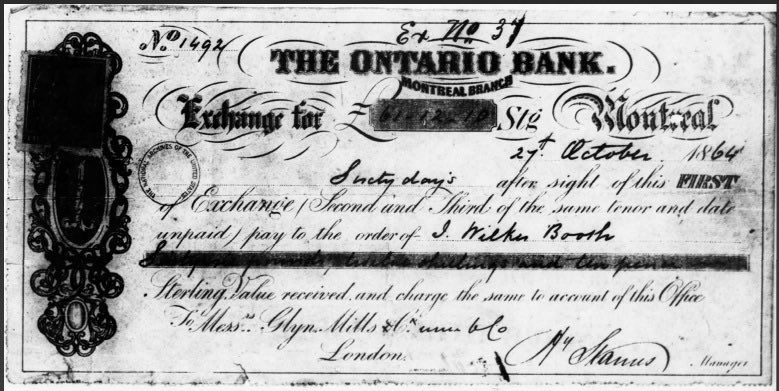 Ex No 37
No 1492
THE ONTARIO BANK.
MONTREAL BRANCH
Exchange for £ 61-12-10 Stg Montreal
27th October 1864
Sixty days after sight of this FIRST
of Exchange (Second and Third of the same tenor and date
unpaid) pay to the order of J. Wilkes Booth
pounds, twelve shillings and ten pence
Sterling, Value received, and charge the same to account of this Office
To Messrs. Glyn, Mills & Co
London.
H Stanus Manager
THE NATIONAL ARCHIVES OF THE UNITED STATES